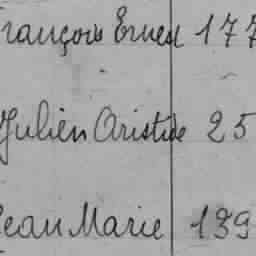 François Ernest 177
Julien Aristide 25
Jean Marie 139